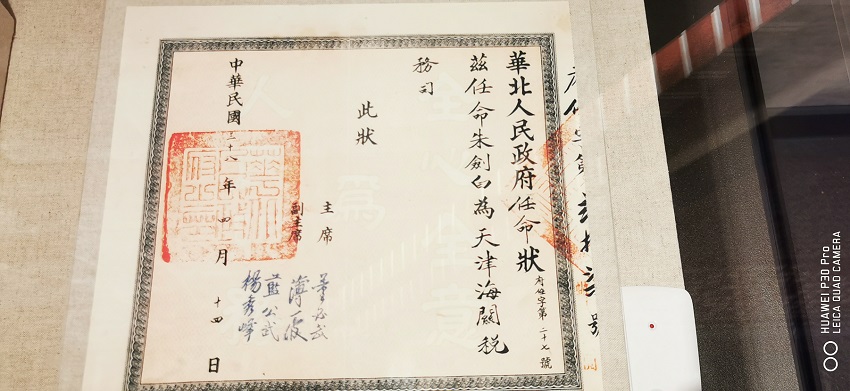 華北人民政府任命狀
府任字第二十七號
茲任命朱劍白為天津海關稅
務司
此狀
主席
董必武
副主席
薄一波
藍公武
楊秀峰
中華民國三十八年四月十四日
HUAWEI P30 Pro
LEICA QUAD CAMERA